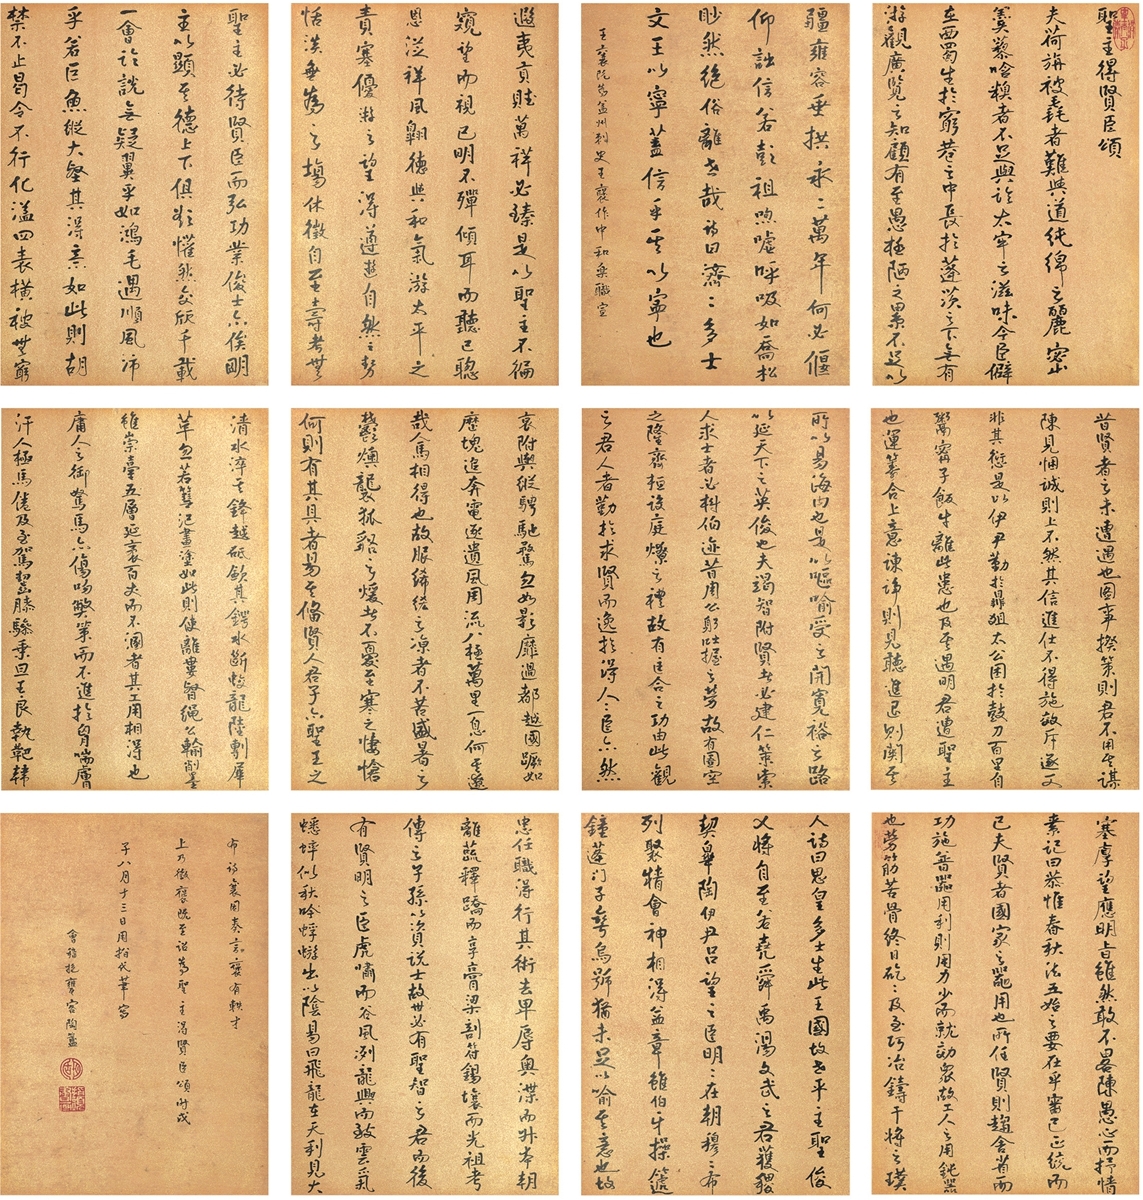 聖主得賢臣頌
夫荷旃被毳者難與道純綿之麗密
羹藜唅糗者不足與論太牢之滋味今臣僻
在西蜀生於窮巷之中長於蓬茨之下無有
游觀廣覽之知顧有至愚極陋之累不足以
塞厚望應明旨雖然敢不畧陳愚心而抒情
素記曰恭惟春秋法五始之要在乎審己正統而
已夫賢者國家之器用也所任賢則趨舍省而
功施普器用利則用力少而就効衆故工人之用鈍器
也勞筋苦骨終日矻矻及至巧冶鑄干將之璞
清水淬其鋒越砥歛其鍔水斷蛟龍陸剸犀
革忽若篲汜畫塗如此則使離婁督繩公輸削墨
雖崇臺五層延袤百丈而不溷者其工用相得也
庸人之御駑馬亦傷吻獘策而不進於胷喘膚
汗人極馬倦及至駕齧膝驂乘旦王良執靶韓
哀附輿縱騁馳騖忽如影靡過都越國蹶如
歷塊追奔電逐遺風周流八極萬里一息何其遼
哉人馬相得也故服絺綌之凉者不苦盛暑之
鬱燠襲狐貉之煖者不憂至寒之悽愴
何則有其具者易其備賢人君子亦聖王之
所以易海內也是以嘔喻受之開寬裕之路
以延天下之英俊也夫竭智附賢者必建仁策索
人求士者必樹伯迹昔周公躬吐握之勞故有圄空
之隆齊桓設庭燎之禮故有匡合之功由此觀
之君人者勤於求賢而逸於得人人臣亦然
昔賢者之未遭遇也圖事揆策則君不用其謀
陳見悃誠則上不然其信進仕不得施效斥逐又
非其愆是以伊尹勤於鼎俎太公困於鼓刀百里自
鬻甯子飯牛離此患也及其遇明君遭聖主
也運籌合上意諫諍則見聽進退則關其
忠任職得行其術去卑辱奧渫而升本朝
離蔬釋蹻而享膏粱剖符錫壤而光祖考
傳之子孫以資說士故世必有聖智之君而後
有賢明之臣虎嘯而谷風冽龍興而致雲氣
蟋蟀似秋吟蜉蝣出以陰易曰飛龍在天利見大
人詩曰思皇多士生此王國故世平主聖俊
乂將自至若堯舜禹湯文武之君獲稷
契皋陶伊尹呂望之臣明明在朝穆穆布
列聚精會神相得益章雖伯牙操篴
鐘蓬門子彎烏號猶未足以喻其意也故
聖主必待賢臣而弘功業俊士亦俟明
主以顯其德上下俱欲懽然交欣千載
一會論說無疑翼乎如鴻毛遇順風沛
乎若巨魚縱大壑其得意如此則胡
禁不止曷令不行化溢四表橫被無窮
遐夷貢賦萬祥必臻是以聖主不徧
窺望而視已明不殫傾耳而聽已聰
恩從祥風翺德與和氣游太平之
責塞優游之望得遵遊自然之勢
恬淡無為之場休徵自至壽考無
疆雍容垂拱永永萬年何必偃
仰詘信若彭祖呴噓呼吸如喬松
眇然絕俗離世哉詩曰濟濟多士
文王以寧蓋信乎其以寧也
王襄既為益州刺史王襃作中和樂職宣
布詩襄因奏言襃有軼才
上乃徵襃既至詔為聖主得賢臣頌時戌
子八月十三日用枱代筆寫
會稽抱甕客陶簠